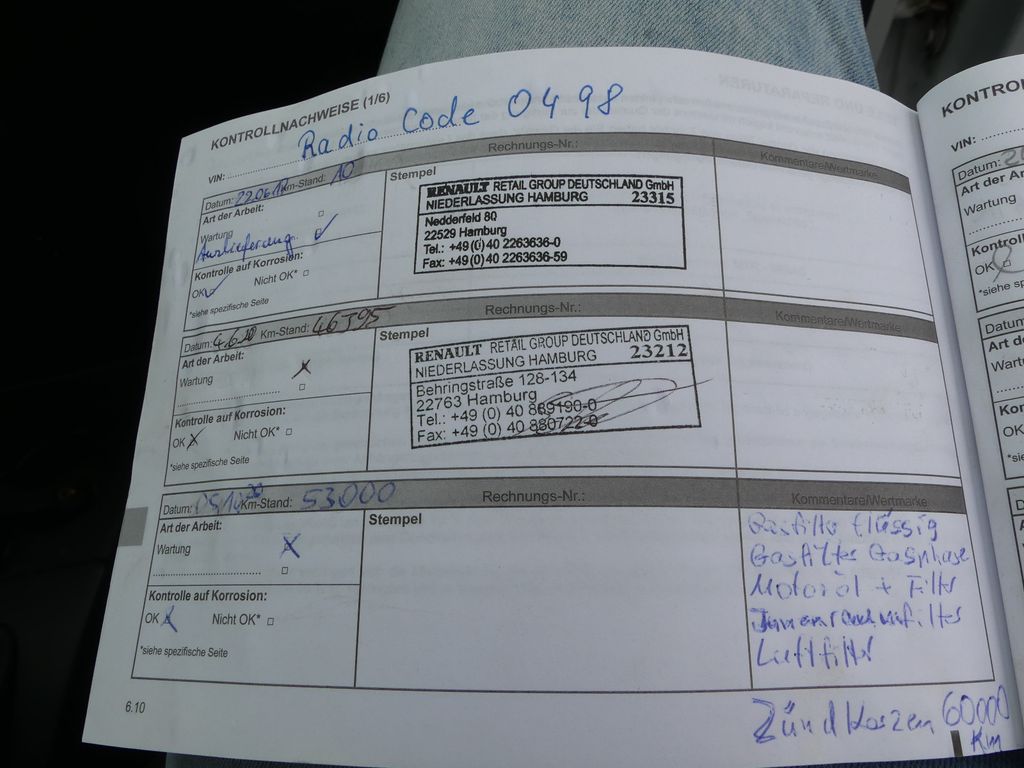 KONTROLLNACHWEISE (1/6)
Radio Code 0498
VIN:
Datum: 22.06.1 Km-Stand: 10
Rechnungs-Nr.:
Kommentare/Wertmarke
Art der Arbeit:
Wartung
Auslieferung
Kontrolle auf Korrosion:
OK Nicht OK*
*siehe spezifische Seite
Stempel
RENAULT RETAIL GROUP DEUTSCHLAND GmbH
NIEDERLASSUNG HAMBURG 23315
Nedderfeld 80
22529 Hamburg
Tel.: +49 (0) 40 2263636-0
Fax: +49 (0) 40 2263636-59
Datum: 4.6. Km-Stand: 46
Rechnungs-Nr.:
Kommentare/Wertmarke
Art der Arbeit:
Wartung
Kontrolle auf Korrosion:
OK Nicht OK*
*siehe spezifische Seite
Stempel
RENAULT RETAIL GROUP DEUTSCHLAND GmbH
NIEDERLASSUNG HAMBURG 23212
Behringstraße 128-134
22763 Hamburg
Tel.: +49 (0) 40 889190-0
Fax: +49 (0) 40 880722-0
Datum: Km-Stand: 53000
Rechnungs-Nr.:
Kommentare/Wertmarke
Art der Arbeit:
Wartung
Kontrolle auf Korrosion:
OK Nicht OK*
*siehe spezifische Seite
Stempel
Gasfilter flüssig
Gasfilter Gasphase
Motoröl + Filter
Innenraumfilter
Luftfilter
Zündkerzen 60000
Km
6.10
KONTRO
VIN:
Datum:
Art der Ar
Wartung
Kontroll
OK
*siehe sp
Datum
Art de
Wart
Kon
OK
*sie